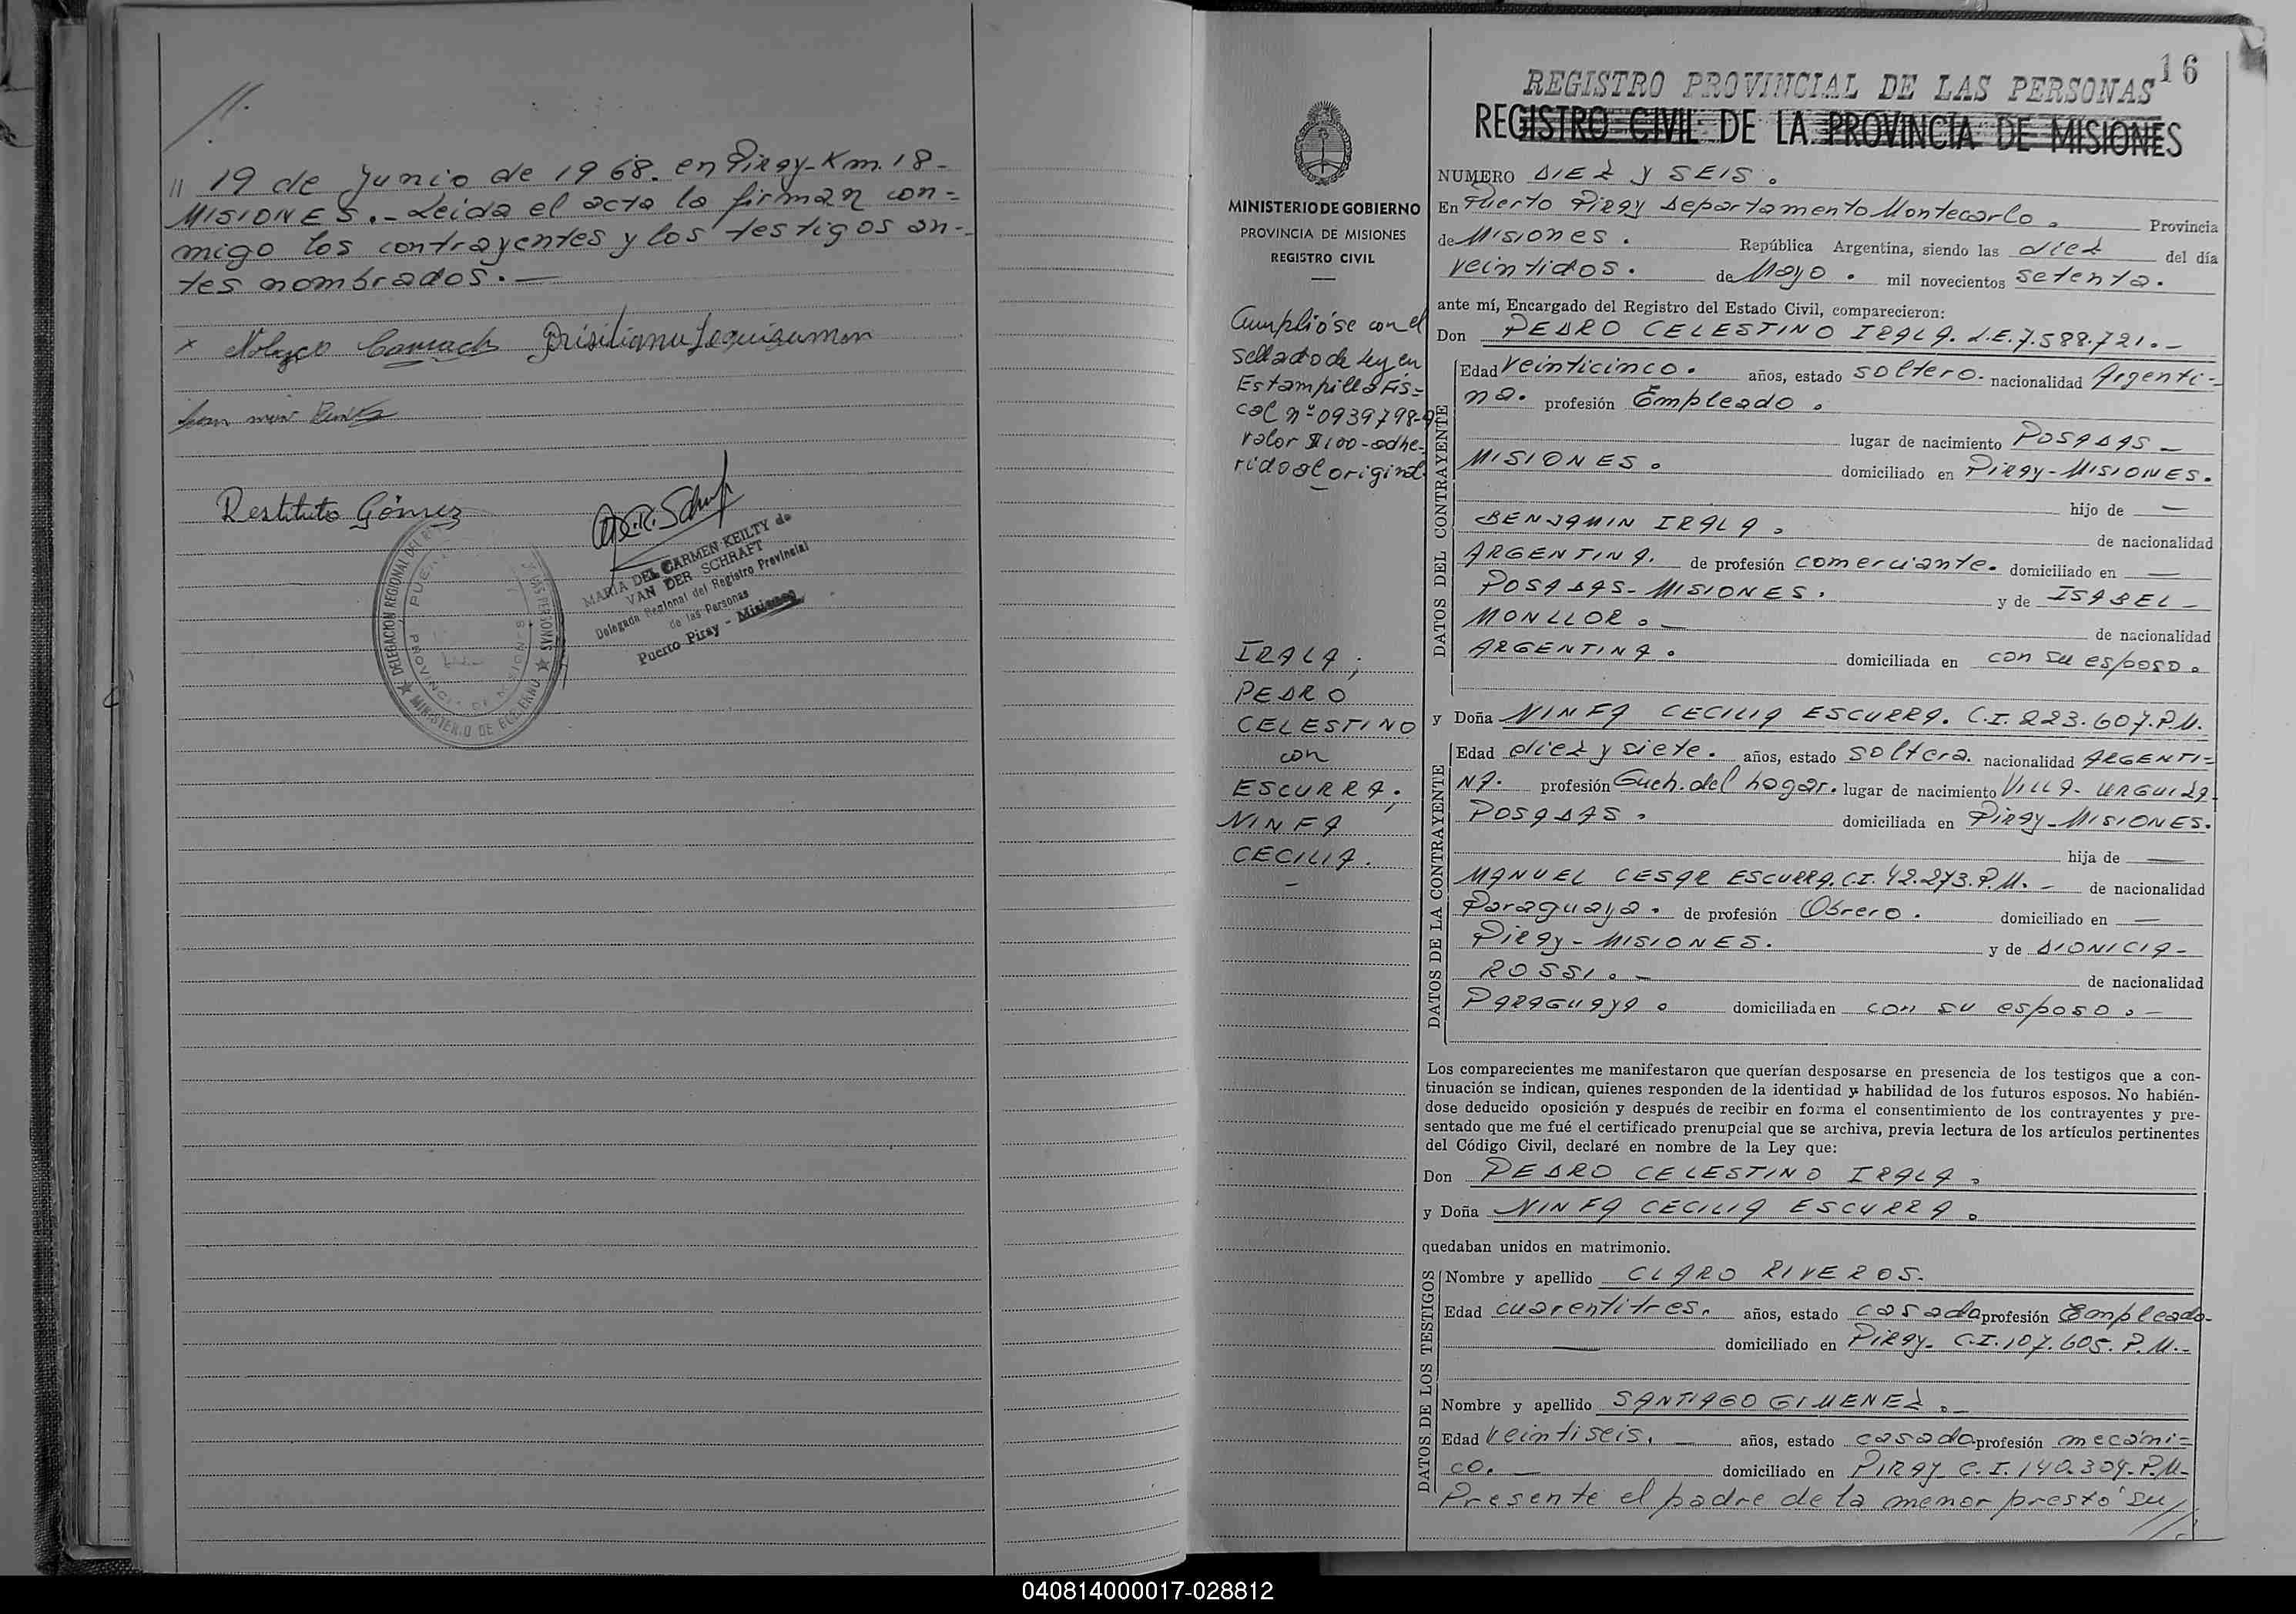 //.
// 19 de Junio de 1968. en Piray-Km.18-
MISIONES.- Leida el acta la firman con=
migo los contrayentes y los testigos an-
tes nombrados.-
x Nolasco Camach Prisiliana Leguizamon
Restituto Gómez
MARIA DEL CARMEN KEILTY de
VAN DER SCHRAFT
Delegada Regional del Registro Provincial
de las Personas
Puerto Piray - Misiones
★ DELEGACION REGIONAL DEL
LAS PERSONAS ★
MINISTERIO DE GOBIERNO
16
REGISTRO PROVINCIAL DE LAS PERSONAS
REGISTRO CIVIL DE LA PROVINCIA DE MISIONES
MINISTERIO DE GOBIERNO
PROVINCIA DE MISIONES
REGISTRO CIVIL
Cumplióse con el
sellado de Ley en
Estampilla Fis=
cal nº 0939798-9
valor $100-adhe-
rido al original
IRALA;
PEDRO
CELESTINO
con
ESCURRA;
NINFA
CECILIA.
-
NUMERO DIEZ Y SEIS.
En Puerto Piray Departamento Montecarlo. Provincia
de Misiones. República Argentina, siendo las diez del día
veintidos. de Mayo. mil novecientos setenta.
ante mí, Encargado del Registro del Estado Civil, comparecieron:
Don PEDRO CELESTINO IRALA. L.E.7.588.721.-
DATOS DEL CONTRAYENTE
Edad veinticinco. años, estado soltero. nacionalidad Argenti-
na. profesión Empleado.
lugar de nacimiento POSADAS-
MISIONES. domiciliado en PIRAY-MISIONES.
hijo de —
BENJAMIN IRALA.
de nacionalidad
ARGENTINA. de profesión comerciante. domiciliado en —
POSADAS-MISIONES. y de ISABEL-
MONLLOR.-
de nacionalidad
ARGENTINA. domiciliada en con su esposo.
y Doña NINFA CECILIA ESCURRA. C.I.223.607.P.M.
DATOS DE LA CONTRAYENTE
Edad diez y siete. años, estado soltera. nacionalidad ARGENTI=
NA. profesión Queh. del hogar. lugar de nacimiento VILLA-URQUIZA
POSADAS. domiciliada en PIRAY-MISIONES.
hija de —
MANUEL CESAR ESCURRA.C.I.42.273.P.M.- de nacionalidad
Paraguaya. de profesión Obrero. domiciliado en —
PIRAY-MISIONES. y de DIONICIA-
ROSSI.-
de nacionalidad
PARAGUAYA. domiciliada en con su esposo.-
Los comparecientes me manifestaron que querían desposarse en presencia de los testigos que a con-
tinuación se indican, quienes responden de la identidad y habilidad de los futuros esposos. No habién-
dose deducido oposición y después de recibir en forma el consentimiento de los contrayentes y pre-
sentado que me fué el certificado prenupcial que se archiva, previa lectura de los artículos pertinentes
del Código Civil, declaré en nombre de la Ley que:
Don PEDRO CELESTINO IRALA.
y Doña NINFA CECILIA ESCURRA.
quedaban unidos en matrimonio.
DATOS DE LOS TESTIGOS
Nombre y apellido CLARO RIVEROS.
Edad cuarentitres. años, estado casado profesión Empleado-
domiciliado en PIRAY- C.I.107.605.P.M.-
Nombre y apellido SANTIAGO GIMENEZ.-
Edad Veintiseis.- años, estado casado profesión mecáni=
co.- domiciliado en PIRAY C.I.140.304.P.M-
Presente el padre de la menor prestó su
//.
040814000017-028812